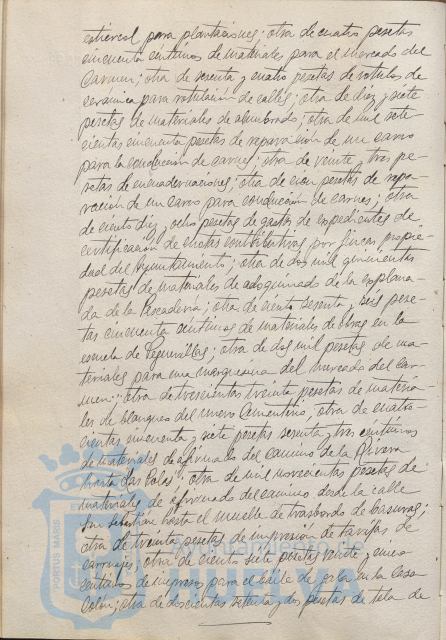 estiercol para plantaciones; otra de cuatro pesetas
cincuenta céntimos de materiales para el mercado del
Carmen; otra de setenta y cuatro pesetas de rotulos de
cerámica para rotulación de calles; otra de diez y siete
pesetas de materiales de alumbrado; otra de mil sete-
cientas cincuenta pesetas de reparación de un carro
para la conducción de carnes; otra de veinte y tres pe-
setas de encuadernaciones; otra de cien pesetas de repa-
ración de un carro para conducción de carnes; otra
de ciento diez y ocho pesetas de gastos de expedientes de
certificación de cuotas contributivas por fincas propie-
dad del Ayuntamiento; otra de dos mil quinientas
pesetas de materiales de adoquinado de la explana-
da de la Pescadería; otra de ciento sesenta y seis pese-
tas cincuenta céntimos de materiales de obras en la
escuela de Peguerillas; otra de dos mil pesetas de ma-
teriales para una marquesina del mercado del Car-
men; otra de trescientas treinta pesetas de materia-
les de blanqueo del nuevo Cementerio; otra de cuatro-
cientas cincuenta y siete pesetas sesenta y tres céntimos
de materiales de afirmado del camino de la Rivera
hasta Las Colas; otra de mil novecientas pesetas de
materiales de afirmado del camino desde la calle
San Sebastián hasta el muelle de trasbordo de basuras;
otra de treinta pesetas de impresión de tarifas de
carruajes; otra de ciento siete pesetas veinte y cinco
céntimos de impresos para el edile de en la Casa
Colón; otra de doscientas setenta y dos pesetas de tela de
PORTUS MARIS
Ayuntamiento de
HUELVA